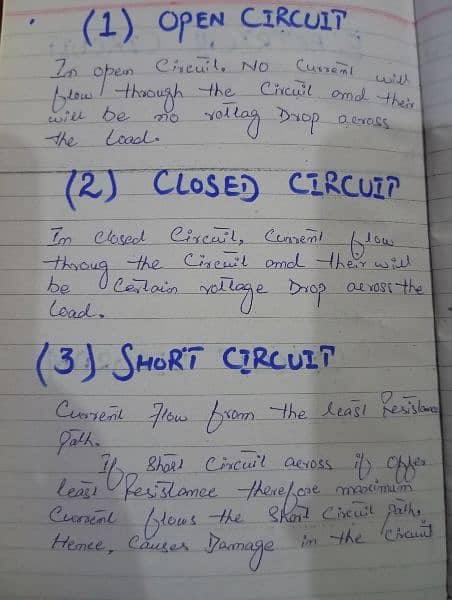 (1) OPEN CIRCUIT
In open Circuit, No Current will
flow through the Circuit and their
will be no voltag Drop across
the Load.
(2) CLOSED CIRCUIT
In closed Circuit, Current flow
throug the Circuit and their will
be Certain voltage Drop across the
Load.
(3) SHORT CIRCUIT
Current Flow from the least Resistance
Path.
If Short Circuit across if offer
least Resistance therefore maximum
Current flows the Short Circuit Path.
Hence, Causes Damage in the Circuit